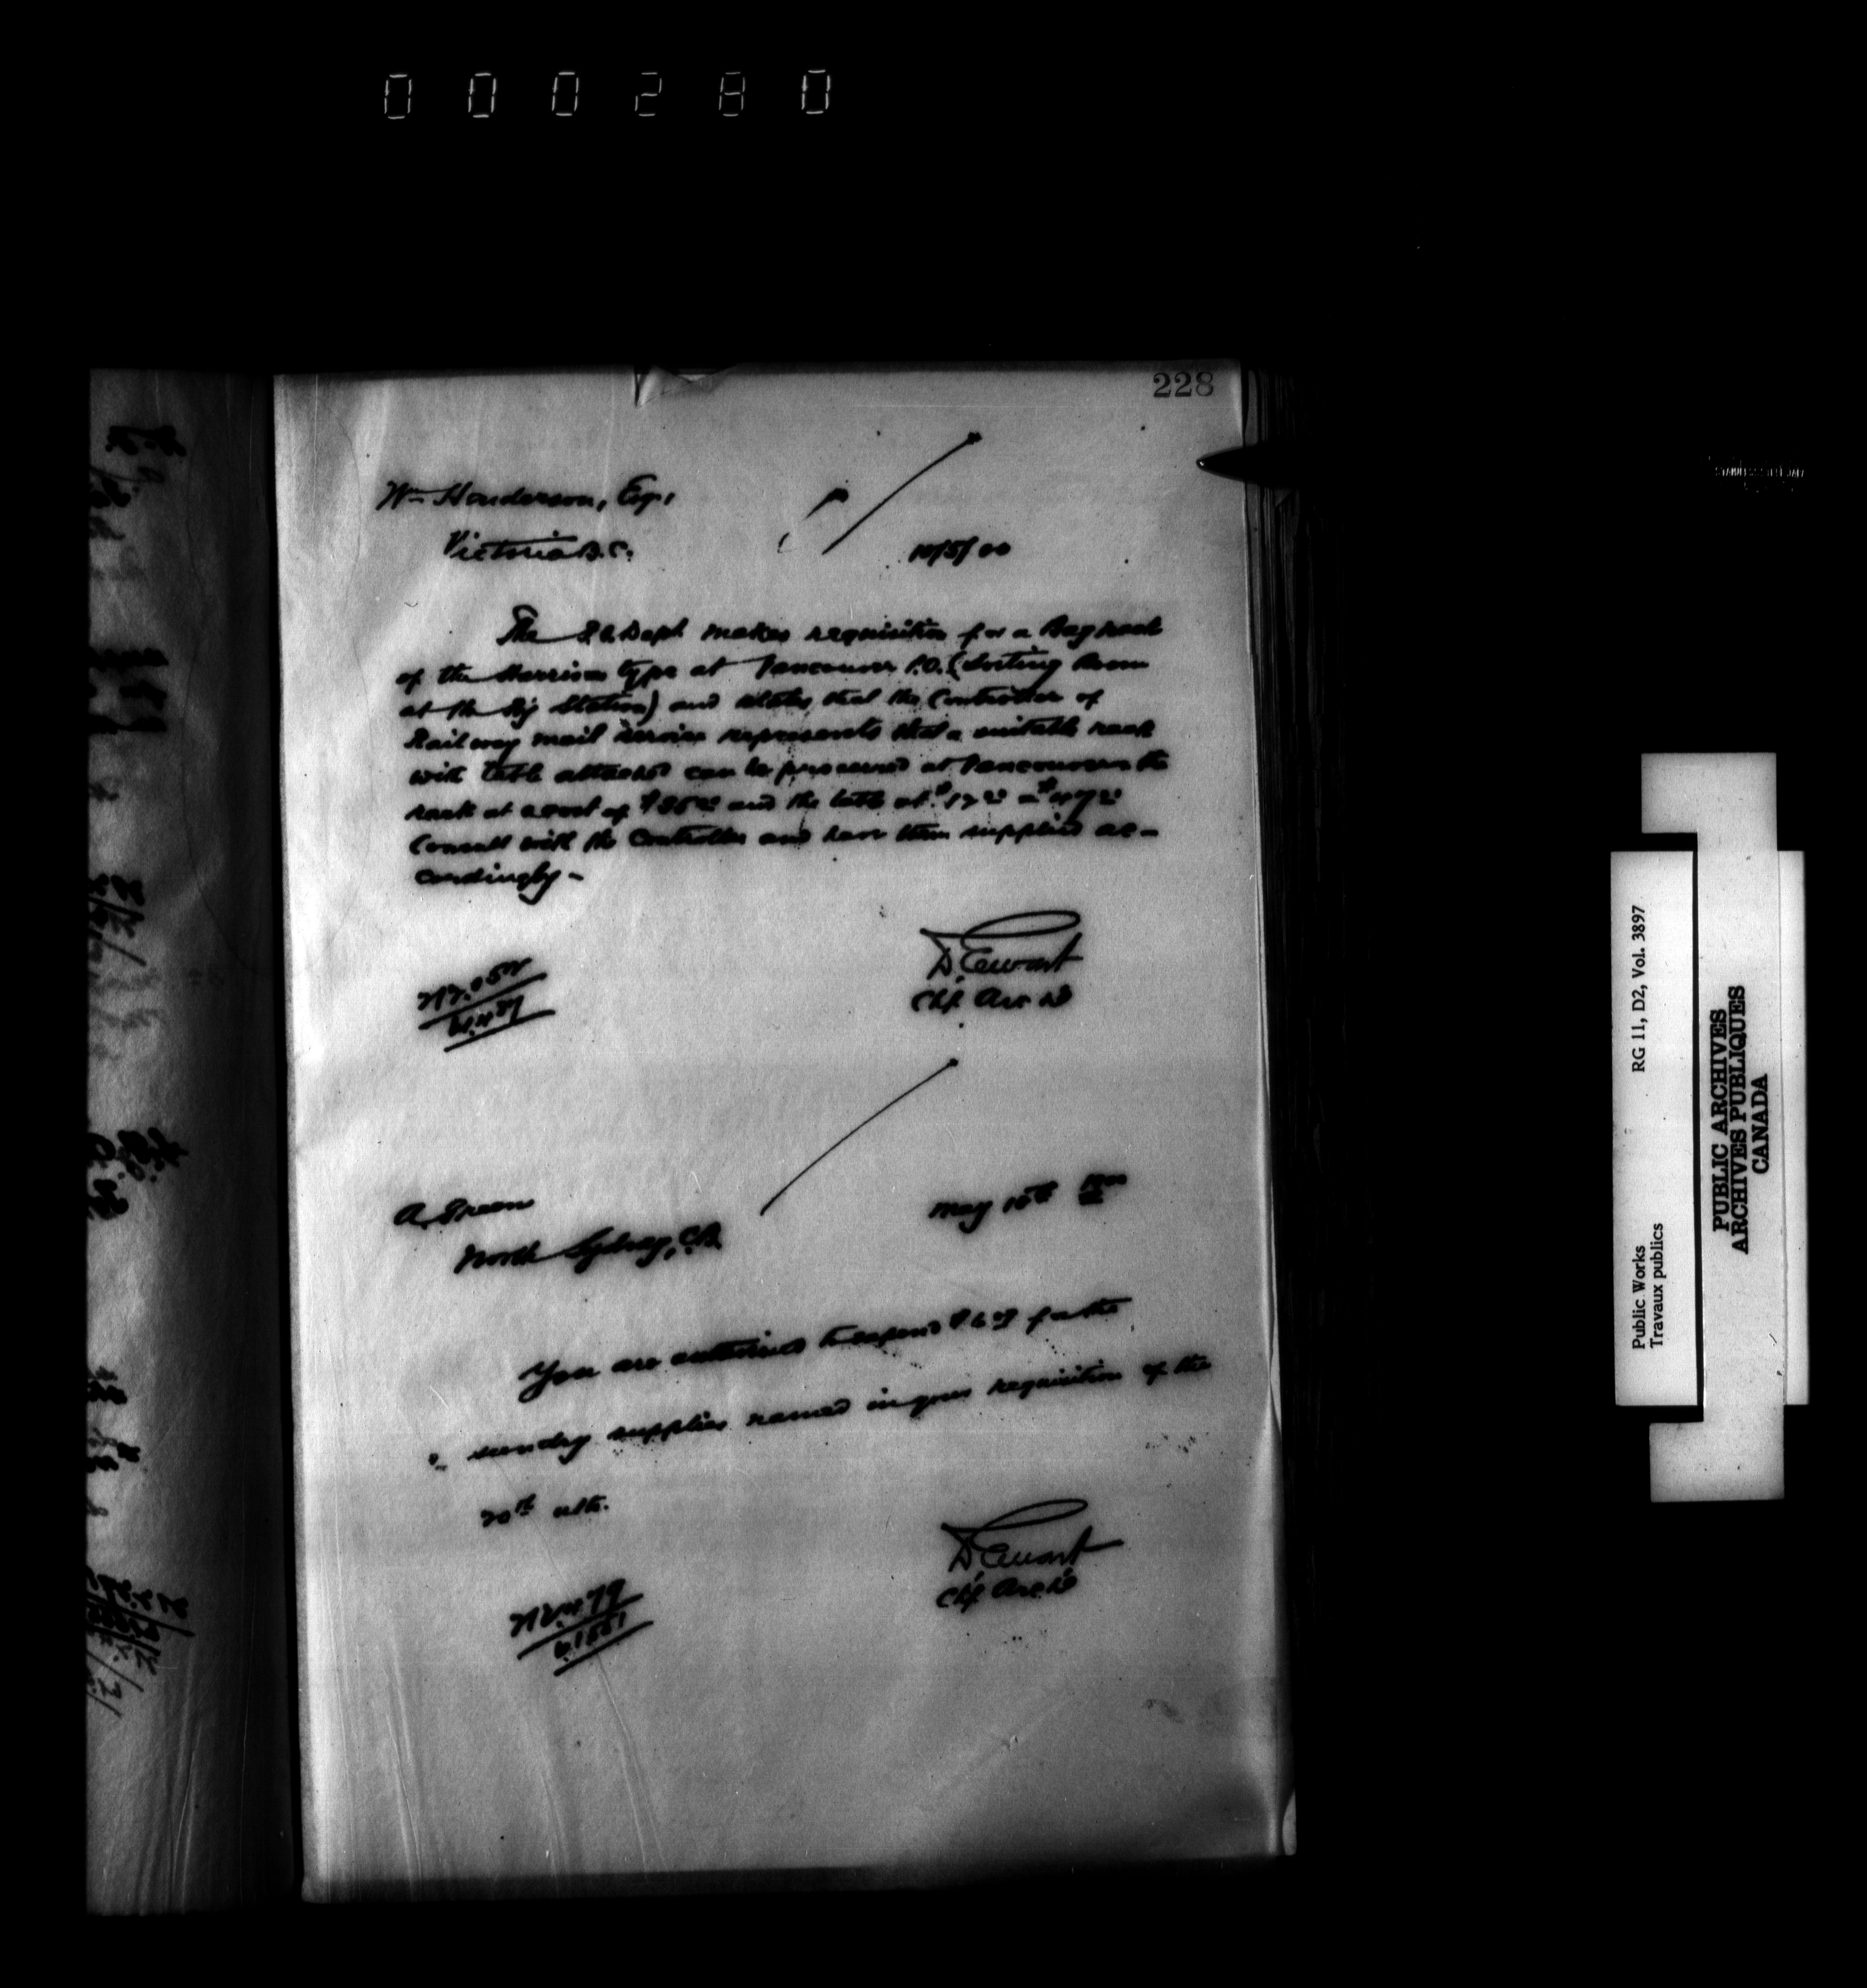 000280
228
Wm Henderson, Esq,
Victoria B.C.
10/5/00
The P.O. Dept makes requisition for a Bag rack
of the Harrison type at Vancouver P.O. (Sorting Room
at the Ry Station) and states that the Controller of
Railway mail Service represents that a suitable rack
with table attached can be procured at Vancouver the
rack at a cost of $35 00 and the table at $12 00 = $47 00
Consult with the Controller and have them supplied ac-
cordingly -
D. Ewart
Chf. Arct
North Sydney, C.B.
May 10th 1900
You are authorized to expend for the
sundry supplies named in your requisition of the
20th ulto.
D. Ewart
Chf. Arct
Public Works
Travaux publics
RG 11, D2, Vol. 3897
PUBLIC ARCHIVES
ARCHIVES PUBLIQUES
CANADA